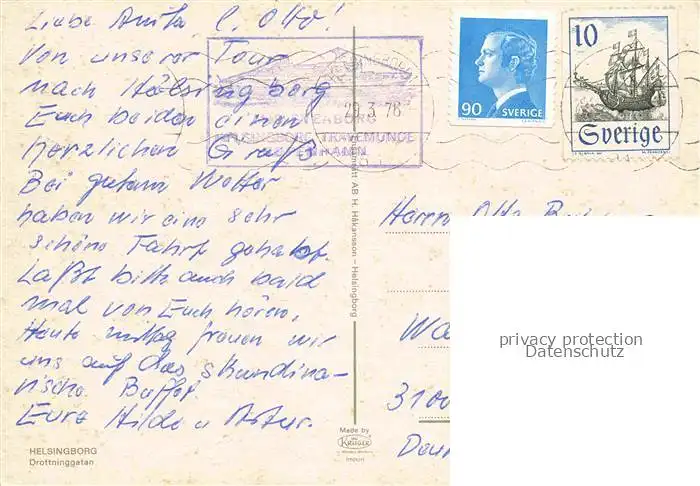 Liebe Anita, l. Otto!
Von unserer Tour
nach Hälsingborg
Euch beiden einen
herzlichen Gruß
Bei gutem Wetter
haben wir eine sehr
schöne Fahrt gehabt.
Laßt bitte auch bald
mal von Euch hören,
Heute mittag freuen wir
uns auf das skandina-
vische Buffet.
Eure Hilde u Artur.
HELSINGBORG
Drottninggatan
29.3.76
HELSINGBORG TRAVEMÜNDE
90 SVERIGE
10
Sverige
AB H. Håkansson - Helsingborg
Made by
KRÜGER
import
Herrn Otto
3100
privacy protection
Datenschutz